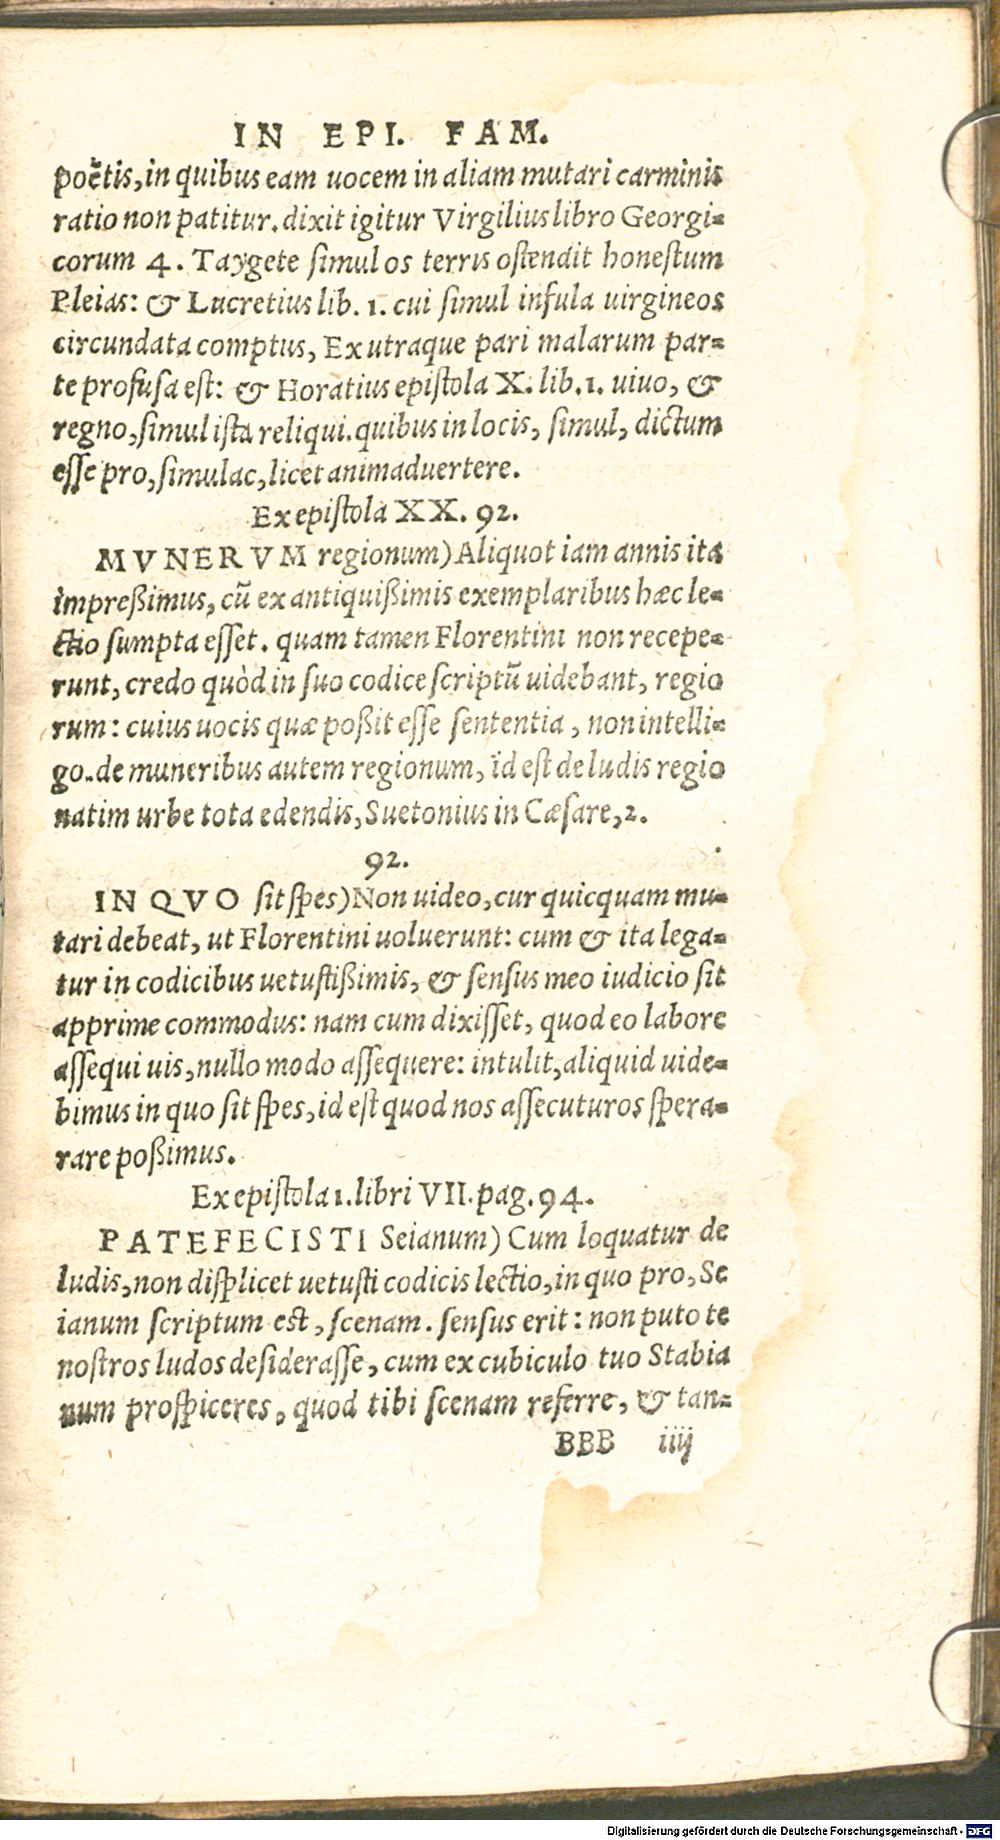 IN EPI. FAM.
poëtis, in quibus eam uocem in aliam mutari carminis
ratio non patitur. dixit igitur Virgilius libro Georgi=
corum 4. Taygete simul os terris ostendit honestum
Pleias: & Lucretius lib. 1. cui simul infula uirgineos
circundata comptus, Ex utraque pari malarum par=
te profusa est: & Horatius epistola X. lib. 1. uiuo, &
regno, simul ista reliqui. quibus in locis, simul, dictum
esse pro, simulac, licet animaduertere.
Ex epistola XX. 92.
MVNERVM regionum) Aliquot iam annis ita
impreßimus, cũ ex antiquißimis exemplaribus hæc le=
ctio sumpta esset. quam tamen Florentini non recepe=
runt, credo quòd in suo codice scriptũ uidebant, regio
rum: cuius uocis quæ poßit esse sententia, non intelli=
go. de muneribus autem regionum, id est de ludis regio
natim urbe tota edendis, Suetonius in Cæsare, 2.
92.
IN QVO sit spes) Non uideo, cur quicquam mu=
tari debeat, ut Florentini uoluerunt: cum & ita lega=
tur in codicibus uetustißimis, & sensus meo iudicio sit
apprime commodus: nam cum dixisset, quod eo labore
assequi uis, nullo modo assequere: intulit, aliquid uide=
bimus in quo sit spes, id est quod nos assecuturos spera=
rare poßimus.
Ex epistola 1. libri VII. pag. 94.
PATEFECISTI Seianum) Cum loquatur de
ludis, non displicet uetusti codicis lectio, in quo pro, Se
ianum scriptum est, scenam. sensus erit: non puto te
nostros ludos desiderasse, cum ex cubiculo tuo Stabia
num prospiceres, quod tibi scenam referre, & tan=
BBB iiij
Digitalisierung gefördert durch die Deutsche Forschungsgemeinschaft - DFG